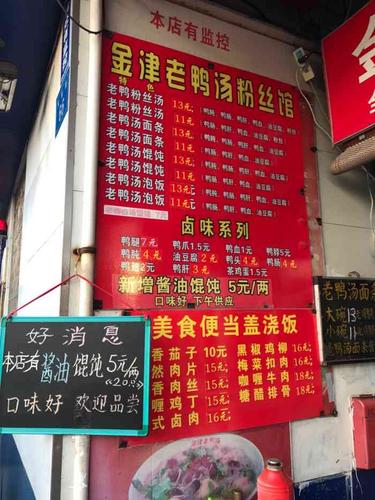 本店有监控
金津老鸭汤粉丝馆
特色
老鸭粉丝汤 13元
老鸭粉丝汤 11元
老鸭汤面条 13元
老鸭汤面条 11元
老鸭汤馄饨 13元
老鸭汤馄饨 11元
老鸭汤泡饭 13元
老鸭汤泡饭 11元
卤味系列
鸭腿7元 鸭爪1.5元 鸭血1元 鸭脖5元
鸭肫4元 油豆腐2元 鸭头4元 鸭肠4元
鸭翅2元 鸭肝3元 茶鸡蛋1.5元
新增酱油馄饨 5元/两
口味好 下午供应
美食便当盖浇饭
香茄子 10元 黑椒鸡柳 16元
然肉片 15元 梅菜扣肉 16元
香肉丝 15元 咖喱牛肉 16元
香鸡丁 15元 糖醋排骨 18元
式卤肉 16元
好消息
本店有酱油馄饨5元/两
口味好 欢迎品尝
老鸭汤面条
大碗13
小碗11
老鸭汤面条
金